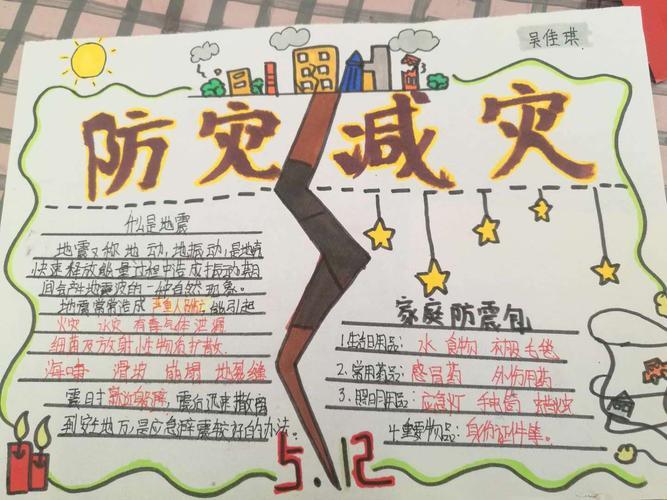 吴佳琪
防灾减灾
什么是地震
地震又称地动,地振动,是地壳
快速释放能量过程中造成振动,期
间会产生地震波的一种自然现象。
地震常常造成严重人员伤亡能引起
火灾 水灾 有毒气体泄漏
细菌及放射性物质扩散
海啸 滑坡 崩塌 地裂缝
震时就近躲避,震后迅速撤离
到安全地方,是应急避震较好的办法。
家庭防震包
1.生活日用品:水 食物 衣服毛毯
2.常用药品:感冒药 外伤用药
3.照明用品:应急灯 手电筒 蜡烛
4.重要物品:身份证件集。
5.12